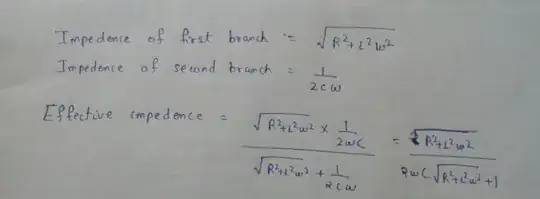 Impedence of first branch = √R²+L²ω²
Impedence of second branch = 1/2cω
Effective impedence = (√R²+L²ω² × 1/2ωC) / (√R²+L²ω² + 1/2cω) = √R²+L²ω² / (2ωC√R²+L²ω² +1)